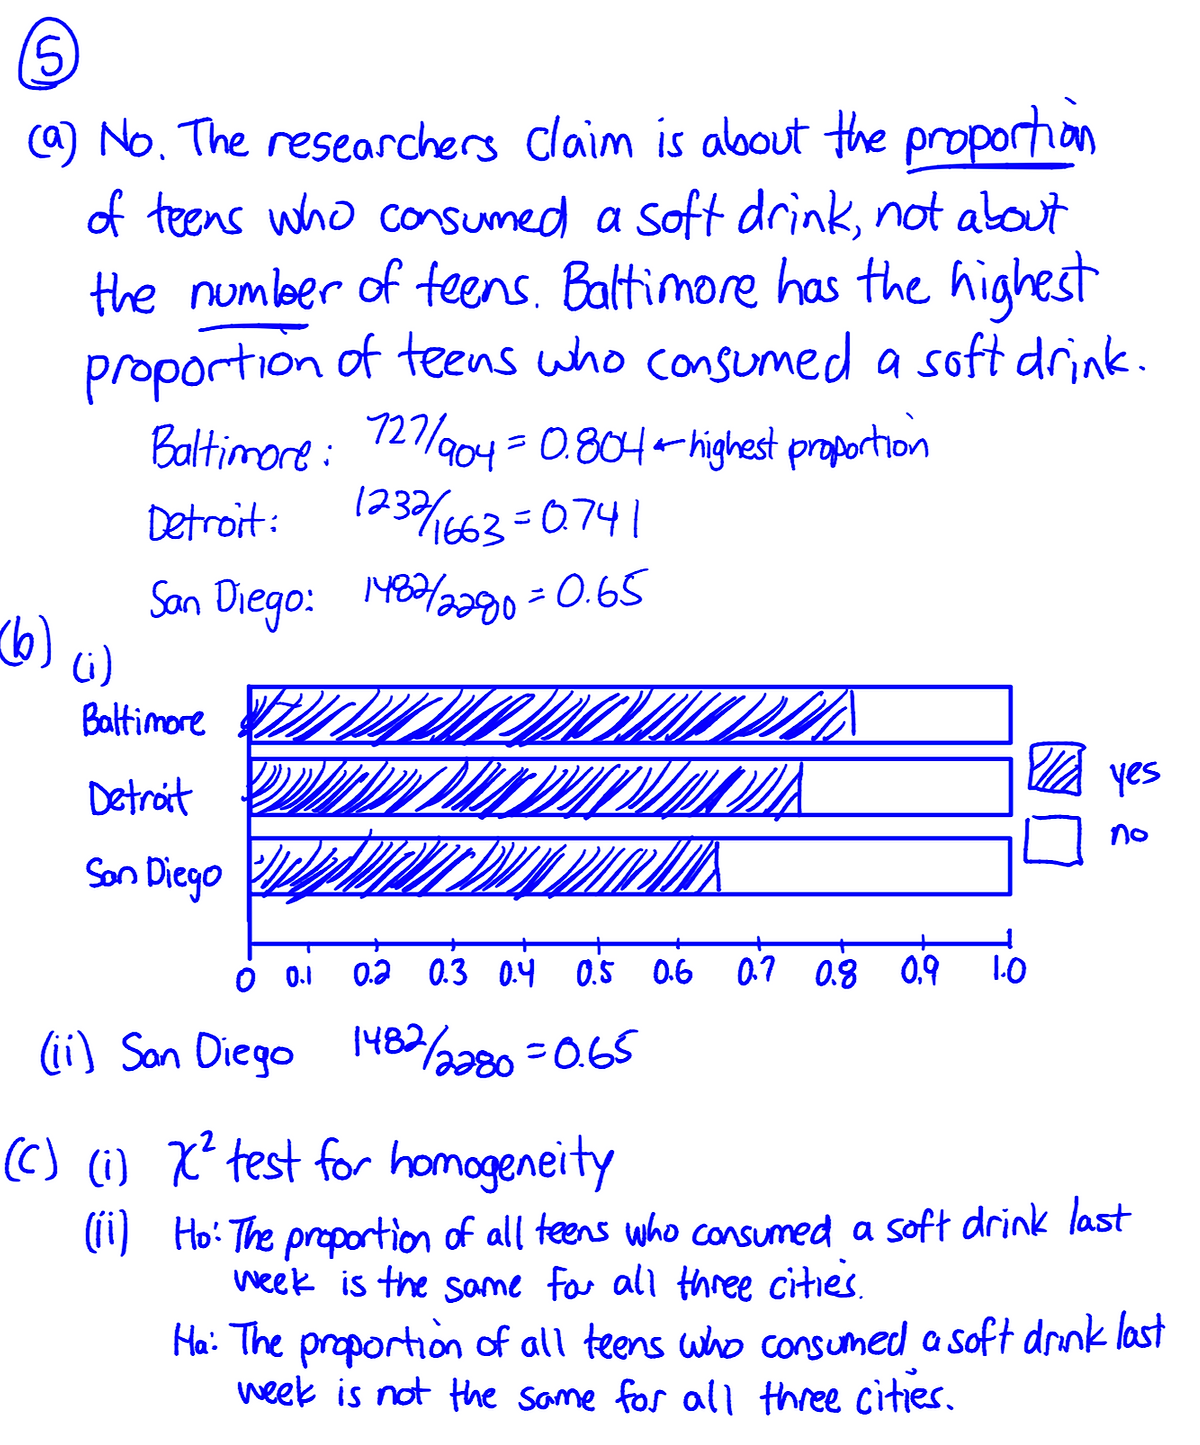 5
(a) No. The researchers claim is about the proportion
of teens who consumed a soft drink, not about
the number of teens. Baltimore has the highest
proportion of teens who consumed a soft drink.
Baltimore: 727/904 = 0.804 ← highest proportion
Detroit: 1232/1663 = 0.741
San Diego: 1482/2280 = 0.65
(b)
(i)
Baltimore
Detroit
San Diego
yes
no
0 0.1 0.2 0.3 0.4 0.5 0.6 0.7 0.8 0.9 1.0
(ii) San Diego 1482/2280 = 0.65
(c) (i) χ² test for homogeneity
(ii) Ho: The proportion of all teens who consumed a soft drink last
week is the same for all three cities.
Ha: The proportion of all teens who consumed a soft drink last
week is not the same for all three cities.